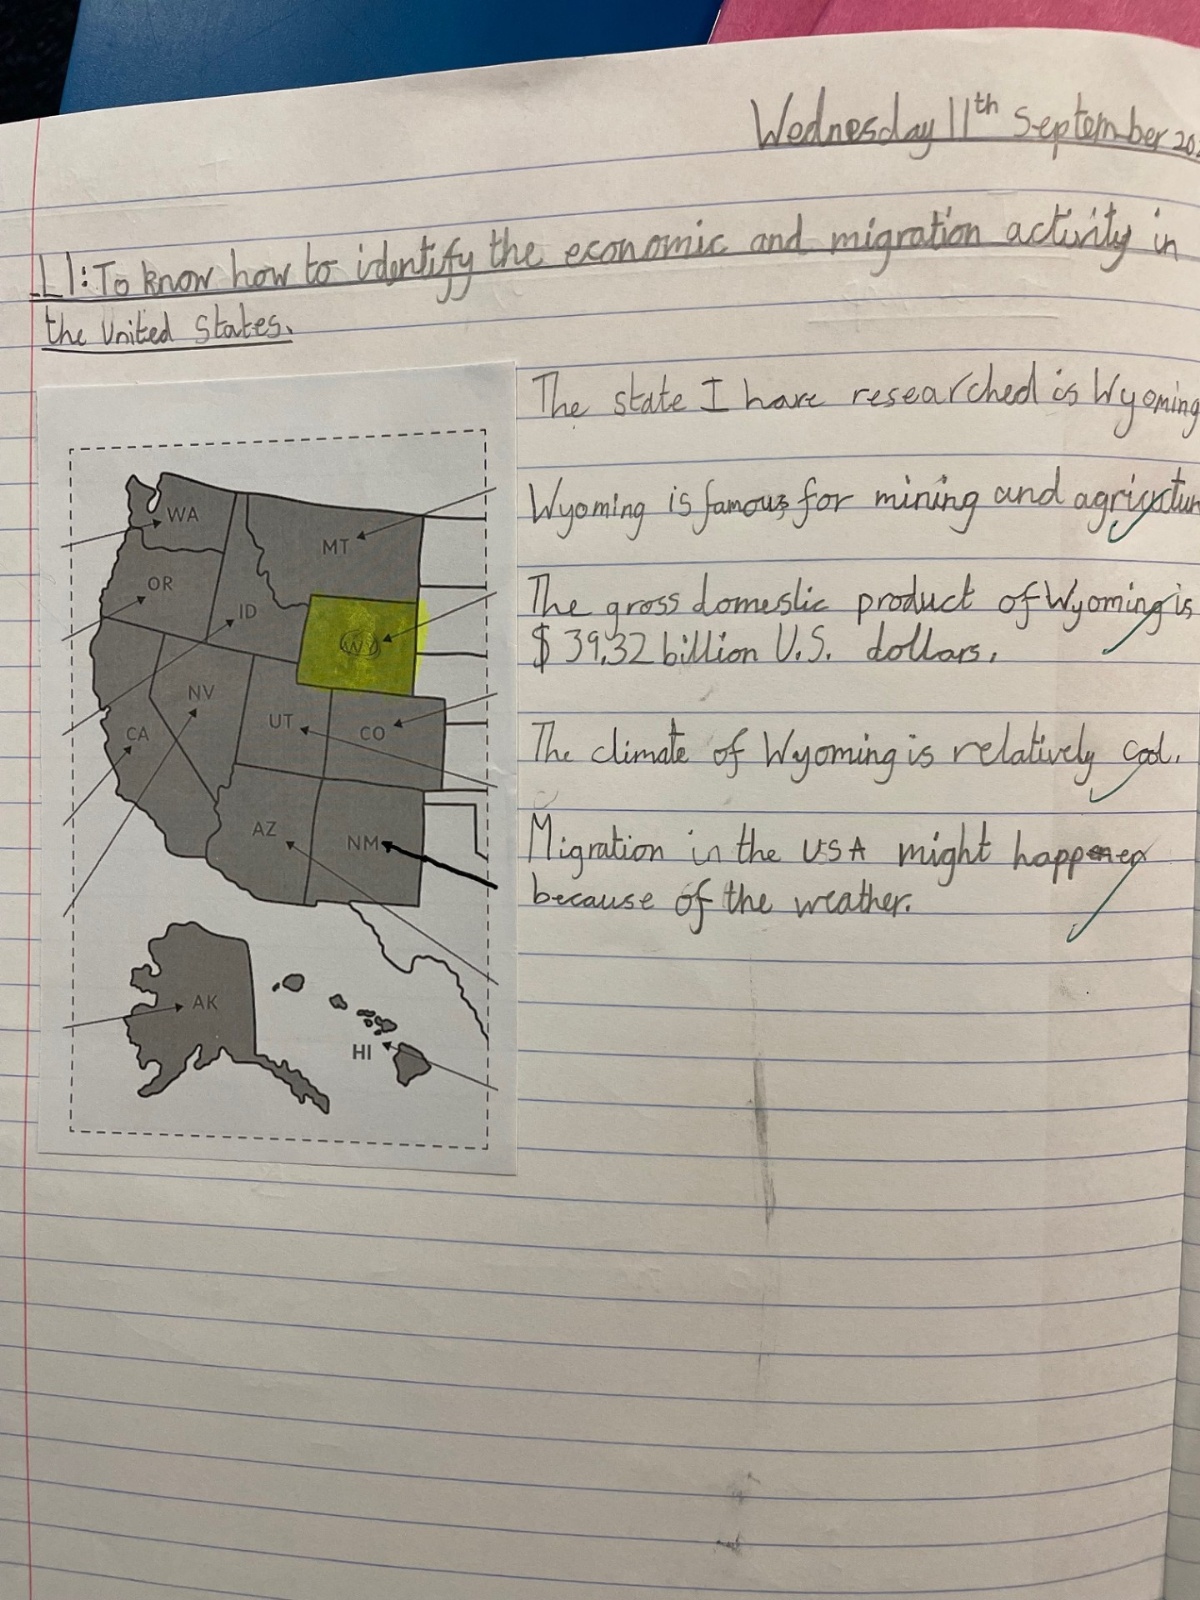 Wednesday 11th September 202
L1: To know how to identify the economic and migration activity in
the United States.
The state I have researched is Wyoming
Wyoming is famous for mining and agricultur
The gross domestic product of Wyoming is
$ 39.32 billion U.S. dollars.
The climate of Wyoming is relatively cool.
Migration in the USA might happen
because of the weather.
WA
MT
OR
ID
WY
NV
UT
CO
CA
AZ
NM
AK
HI